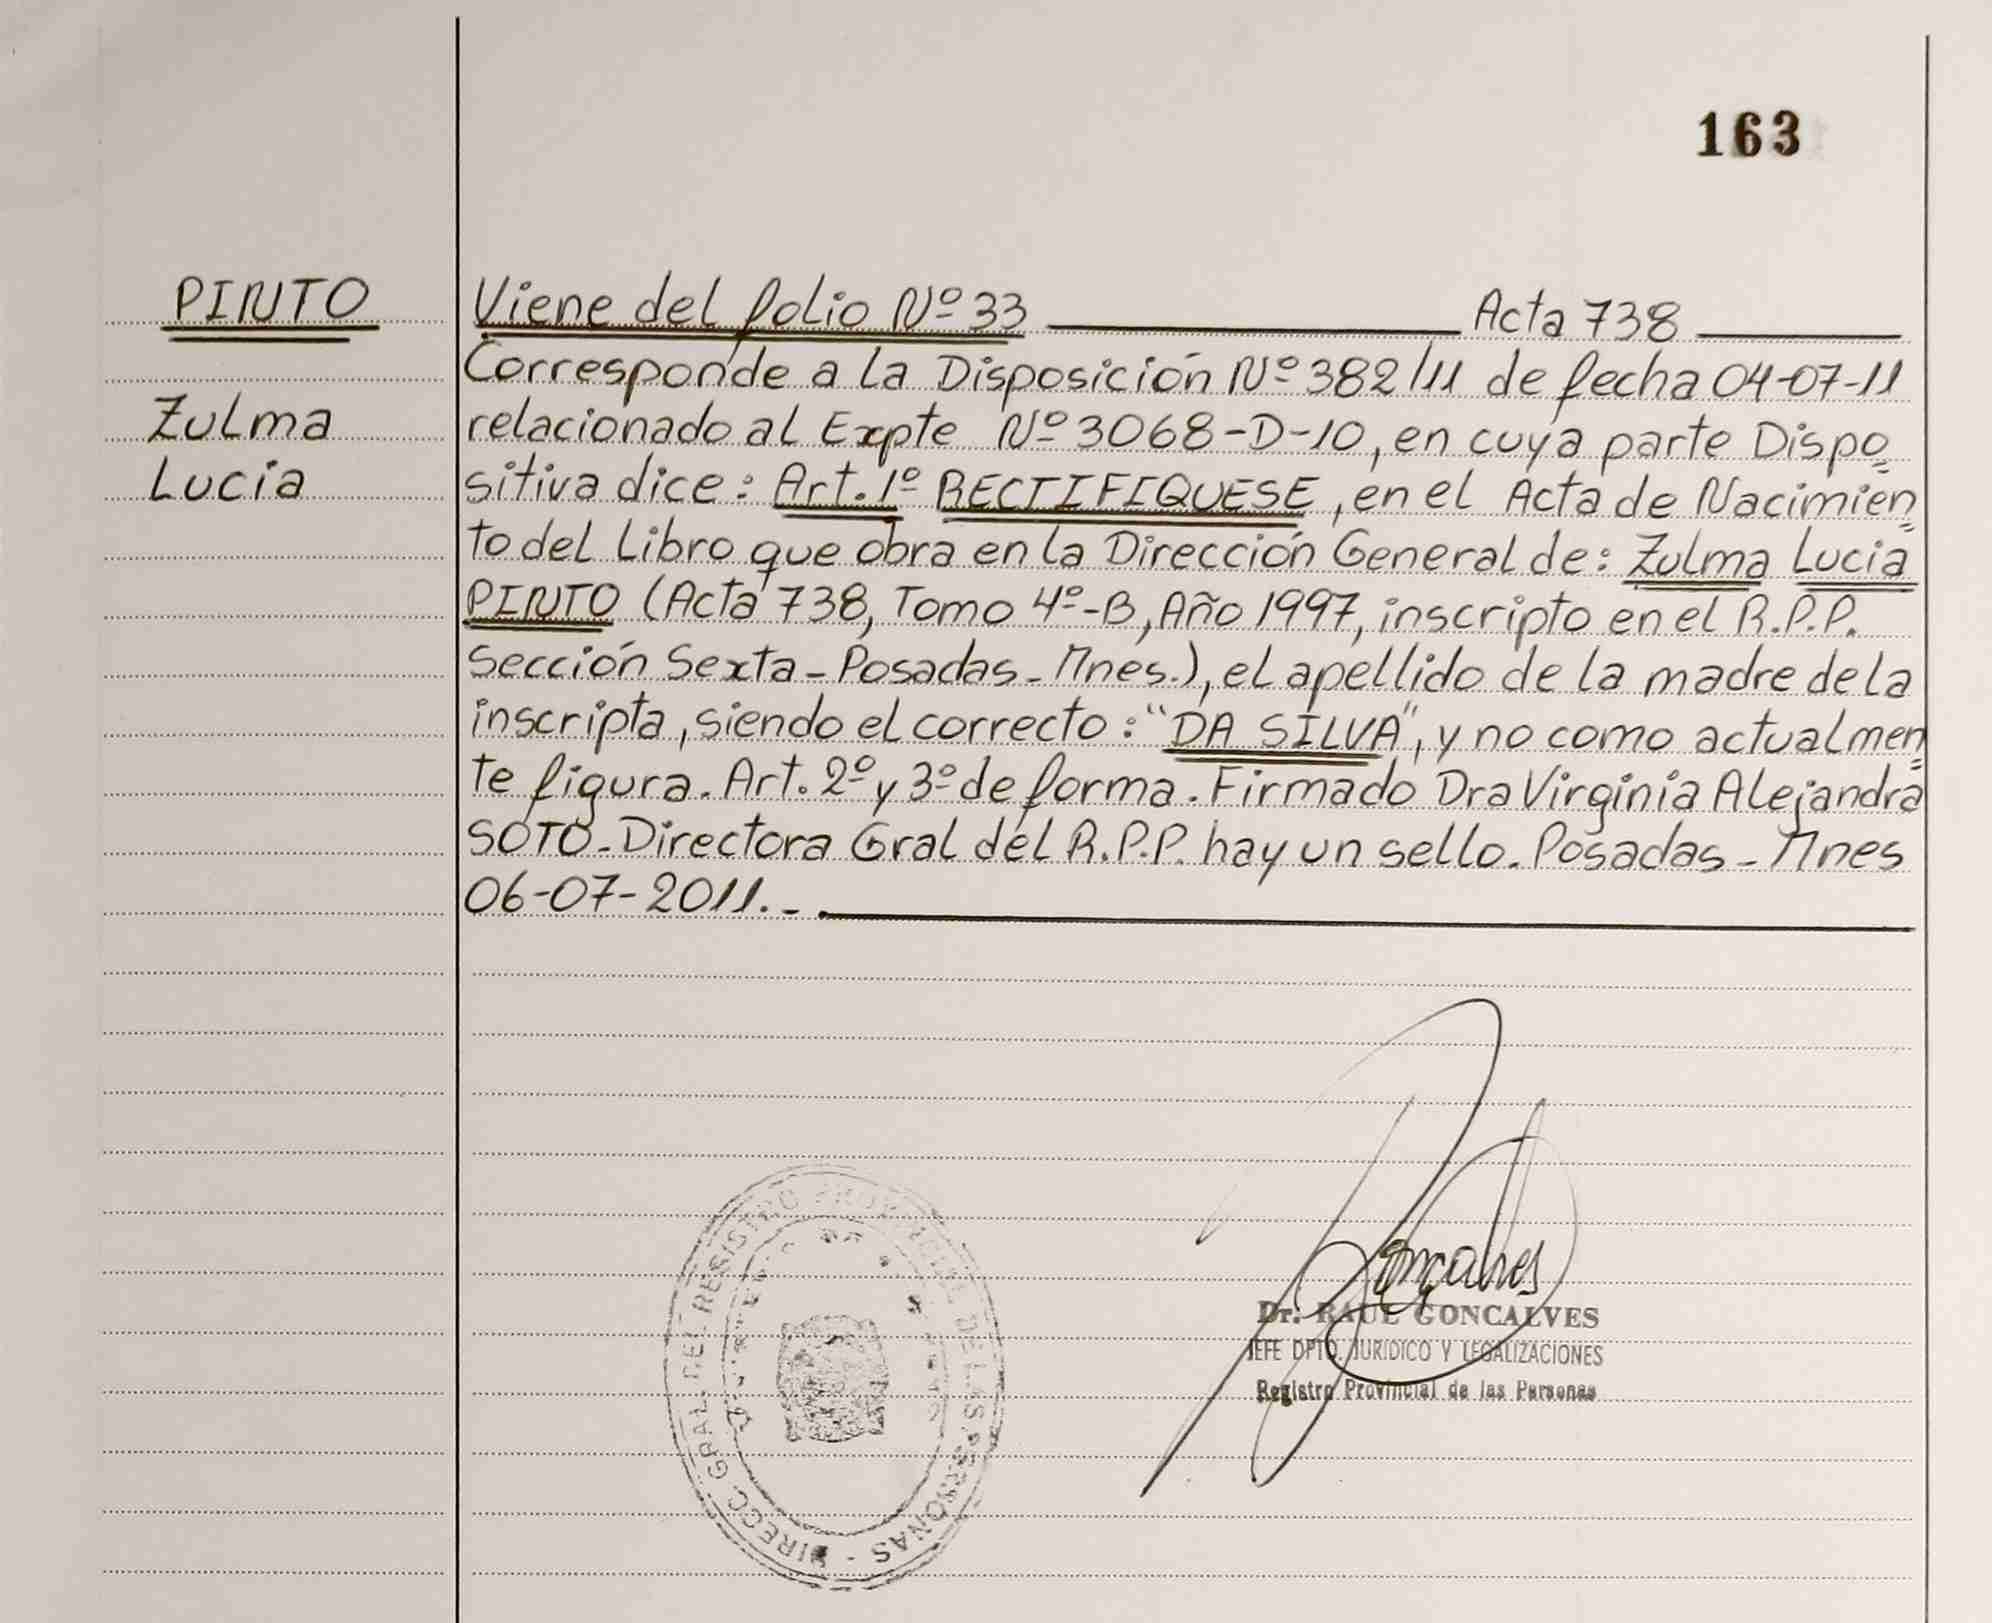 163
PINTO
Zulma
Lucía
Viene del folio Nº 33 Acta 738
Corresponde a la Disposición Nº 382/11 de fecha 04-07-11
relacionado al Expte Nº 3068-D-10, en cuya parte Dispo=
sitiva dice: Art. 1º RECTIFIQUESE, en el Acta de Nacimien=
to del Libro que obra en la Dirección General de: Zulma Lucía
PINTO (Acta 738, Tomo 4º-B, Año 1997, inscripto en el R.P.P.
Sección Sexta - Posadas - Mnes.), el apellido de la madre de la
inscripta, siendo el correcto: "DA SILVA", y no como actualmen=
te figura. Art. 2º y 3º de forma. Firmado Dra Virginia Alejandra
SOTO - Directora Gral del R.P.P. hay un sello. Posadas - Mnes
06-07-2011. -
DIRECC. GRAL. DEL REGISTRO PROVINCIAL DE LAS PERSONAS -
Goncalves
Dr. RAUL GONCALVES
JEFE DPTO. JURIDICO Y LEGALIZACIONES
Registro Provincial de las Personas